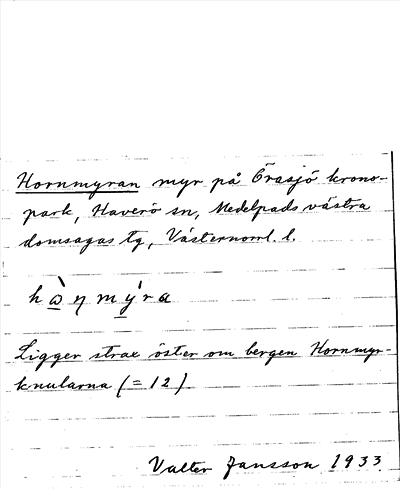 Hornmyran myr på Örasjö krono-
park, Haverö sn, Medelpads västra
domsagas tg, Västernorrl. l.
hàŋmýra
Ligger strax öster om bergen Hornmyr-
knularna (= 12)
Valter Jansson 1933.